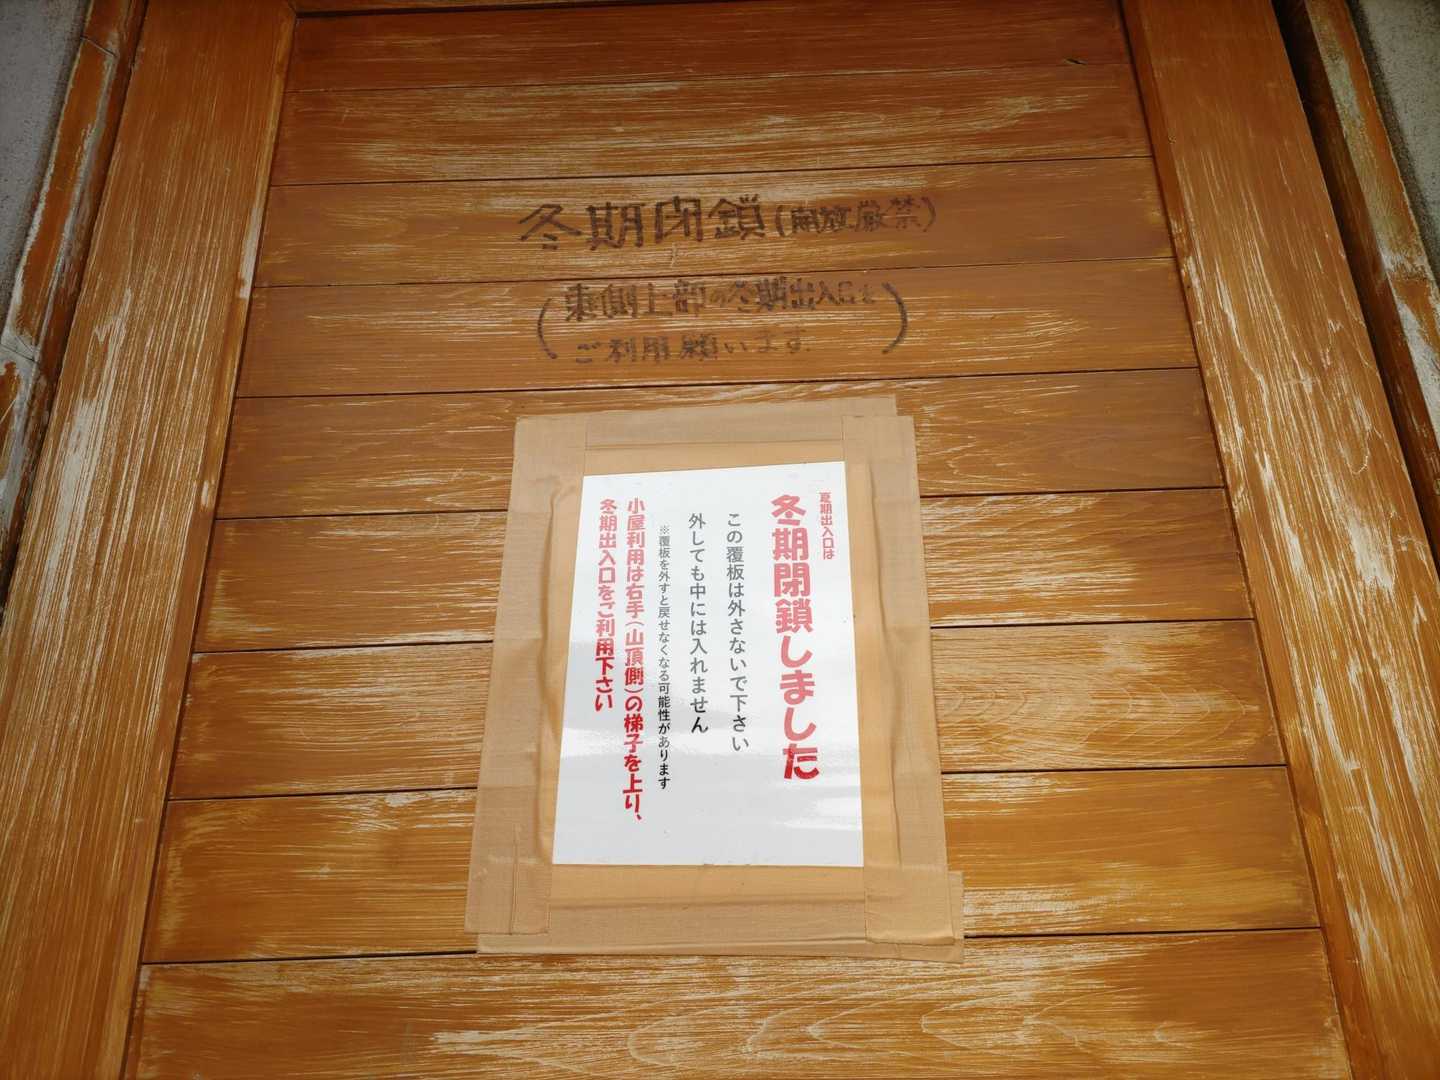 冬期閉鎖(開放厳禁)
(東側上部の冬期出入口を
ご利用願います)
夏期出入口は
冬期閉鎖しました
この覆板は外さないで下さい
外しても中には入れません
※覆板を外すと戻せなくなる可能性があります
小屋利用は右手(山頂側)の梯子を上り、
冬期出入口をご利用下さい